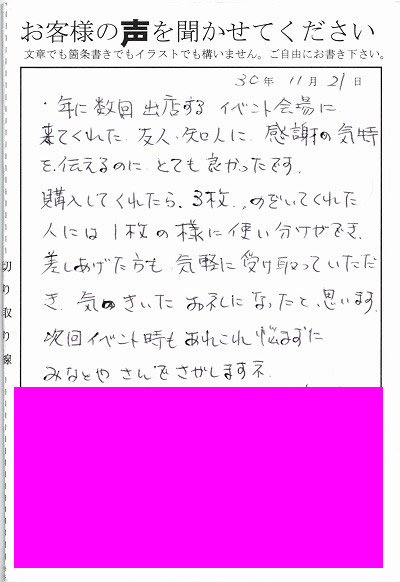 お客様の声を聞かせてください
文章でも箇条書きでもイラストでも構いません。ご自由にお書き下さい。
30年 11月 21日
・年に数回出店する イベント会場に
来てくれた 友人・知人に 感謝の気持
を伝えるのに とても良かったです。
購入してくれたら、3枚、のぞいてくれた
人には1枚の様に使い分けができ、
差しあげた方も 気軽に受け取っていただ
き、気のきいた お礼になったと、思います。
次回イベント時も あれこれ悩まずに
みなとや さんでさがしますネ
切り取り線